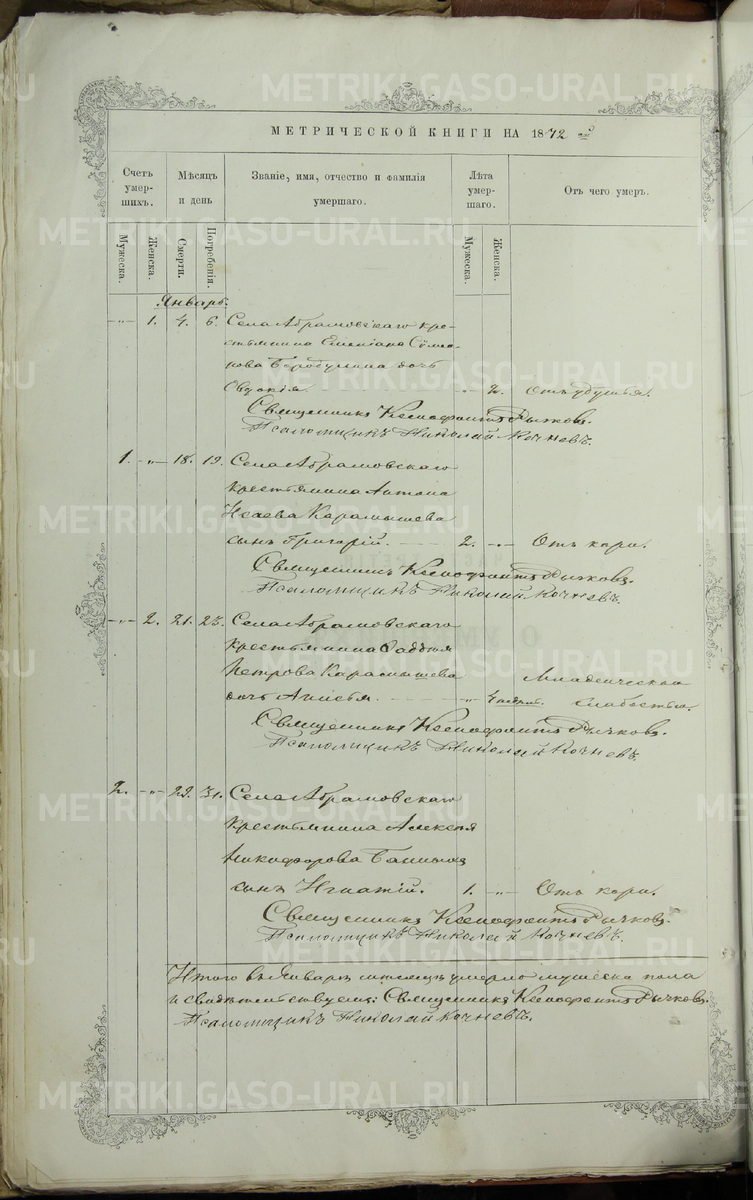 МЕТРИЧЕСКОЙ КНИГИ НА 1872 й
Счетъ умер-шихъ. Мѣсяцъ и день Званіе, имя, отчество и фамилія умершаго. Лѣта умер-шаго. Отъ чего умеръ.
Мужеска. Женска. Смерти. Погребенія. Мужеска. Женска.
Январь.
-„- 1. 4. 6. Села Абрамовскаго кре-
стьянина Емеліана Сѵмео-
нова дочь
Евдокія. 2.
Священникъ Ксенофонтъ Рычковъ.
Псаломщикъ Николай Кочневъ.
1. -„- 18. 19. Села Абрамовскаго
крестьянина Антона
Исаева Карамышева
сынъ Григорій. 2. -„- Отъ кори.
Священникъ Ксенофонтъ Рычковъ.
Псаломщикъ Николай Кочневъ.
-„- 2. 21. 23. Села Абрамовскаго
крестьянина Фаддея
Петрова Карамышева Младенческою
дочь Анисья. -„- слабостью.
Священникъ Ксенофонтъ Рычковъ.
Псаломщикъ Николай Кочневъ.
2. -„- 29. 31. Села Абрамовскаго
крестьянина Алексея
Никифорова
сынъ Игнатій. 1. -„- Отъ кори.
Священникъ Ксенофонтъ Рычковъ.
Псаломщикъ Николай Кочневъ.
Итого въ Январѣ мѣсяцѣ умерло мужеска пола
и свидѣтельствуемъ: Священникъ Ксенофонтъ Рычковъ.
Псаломщикъ Николай Кочневъ.
METRIKI.GASO-URAL.RU